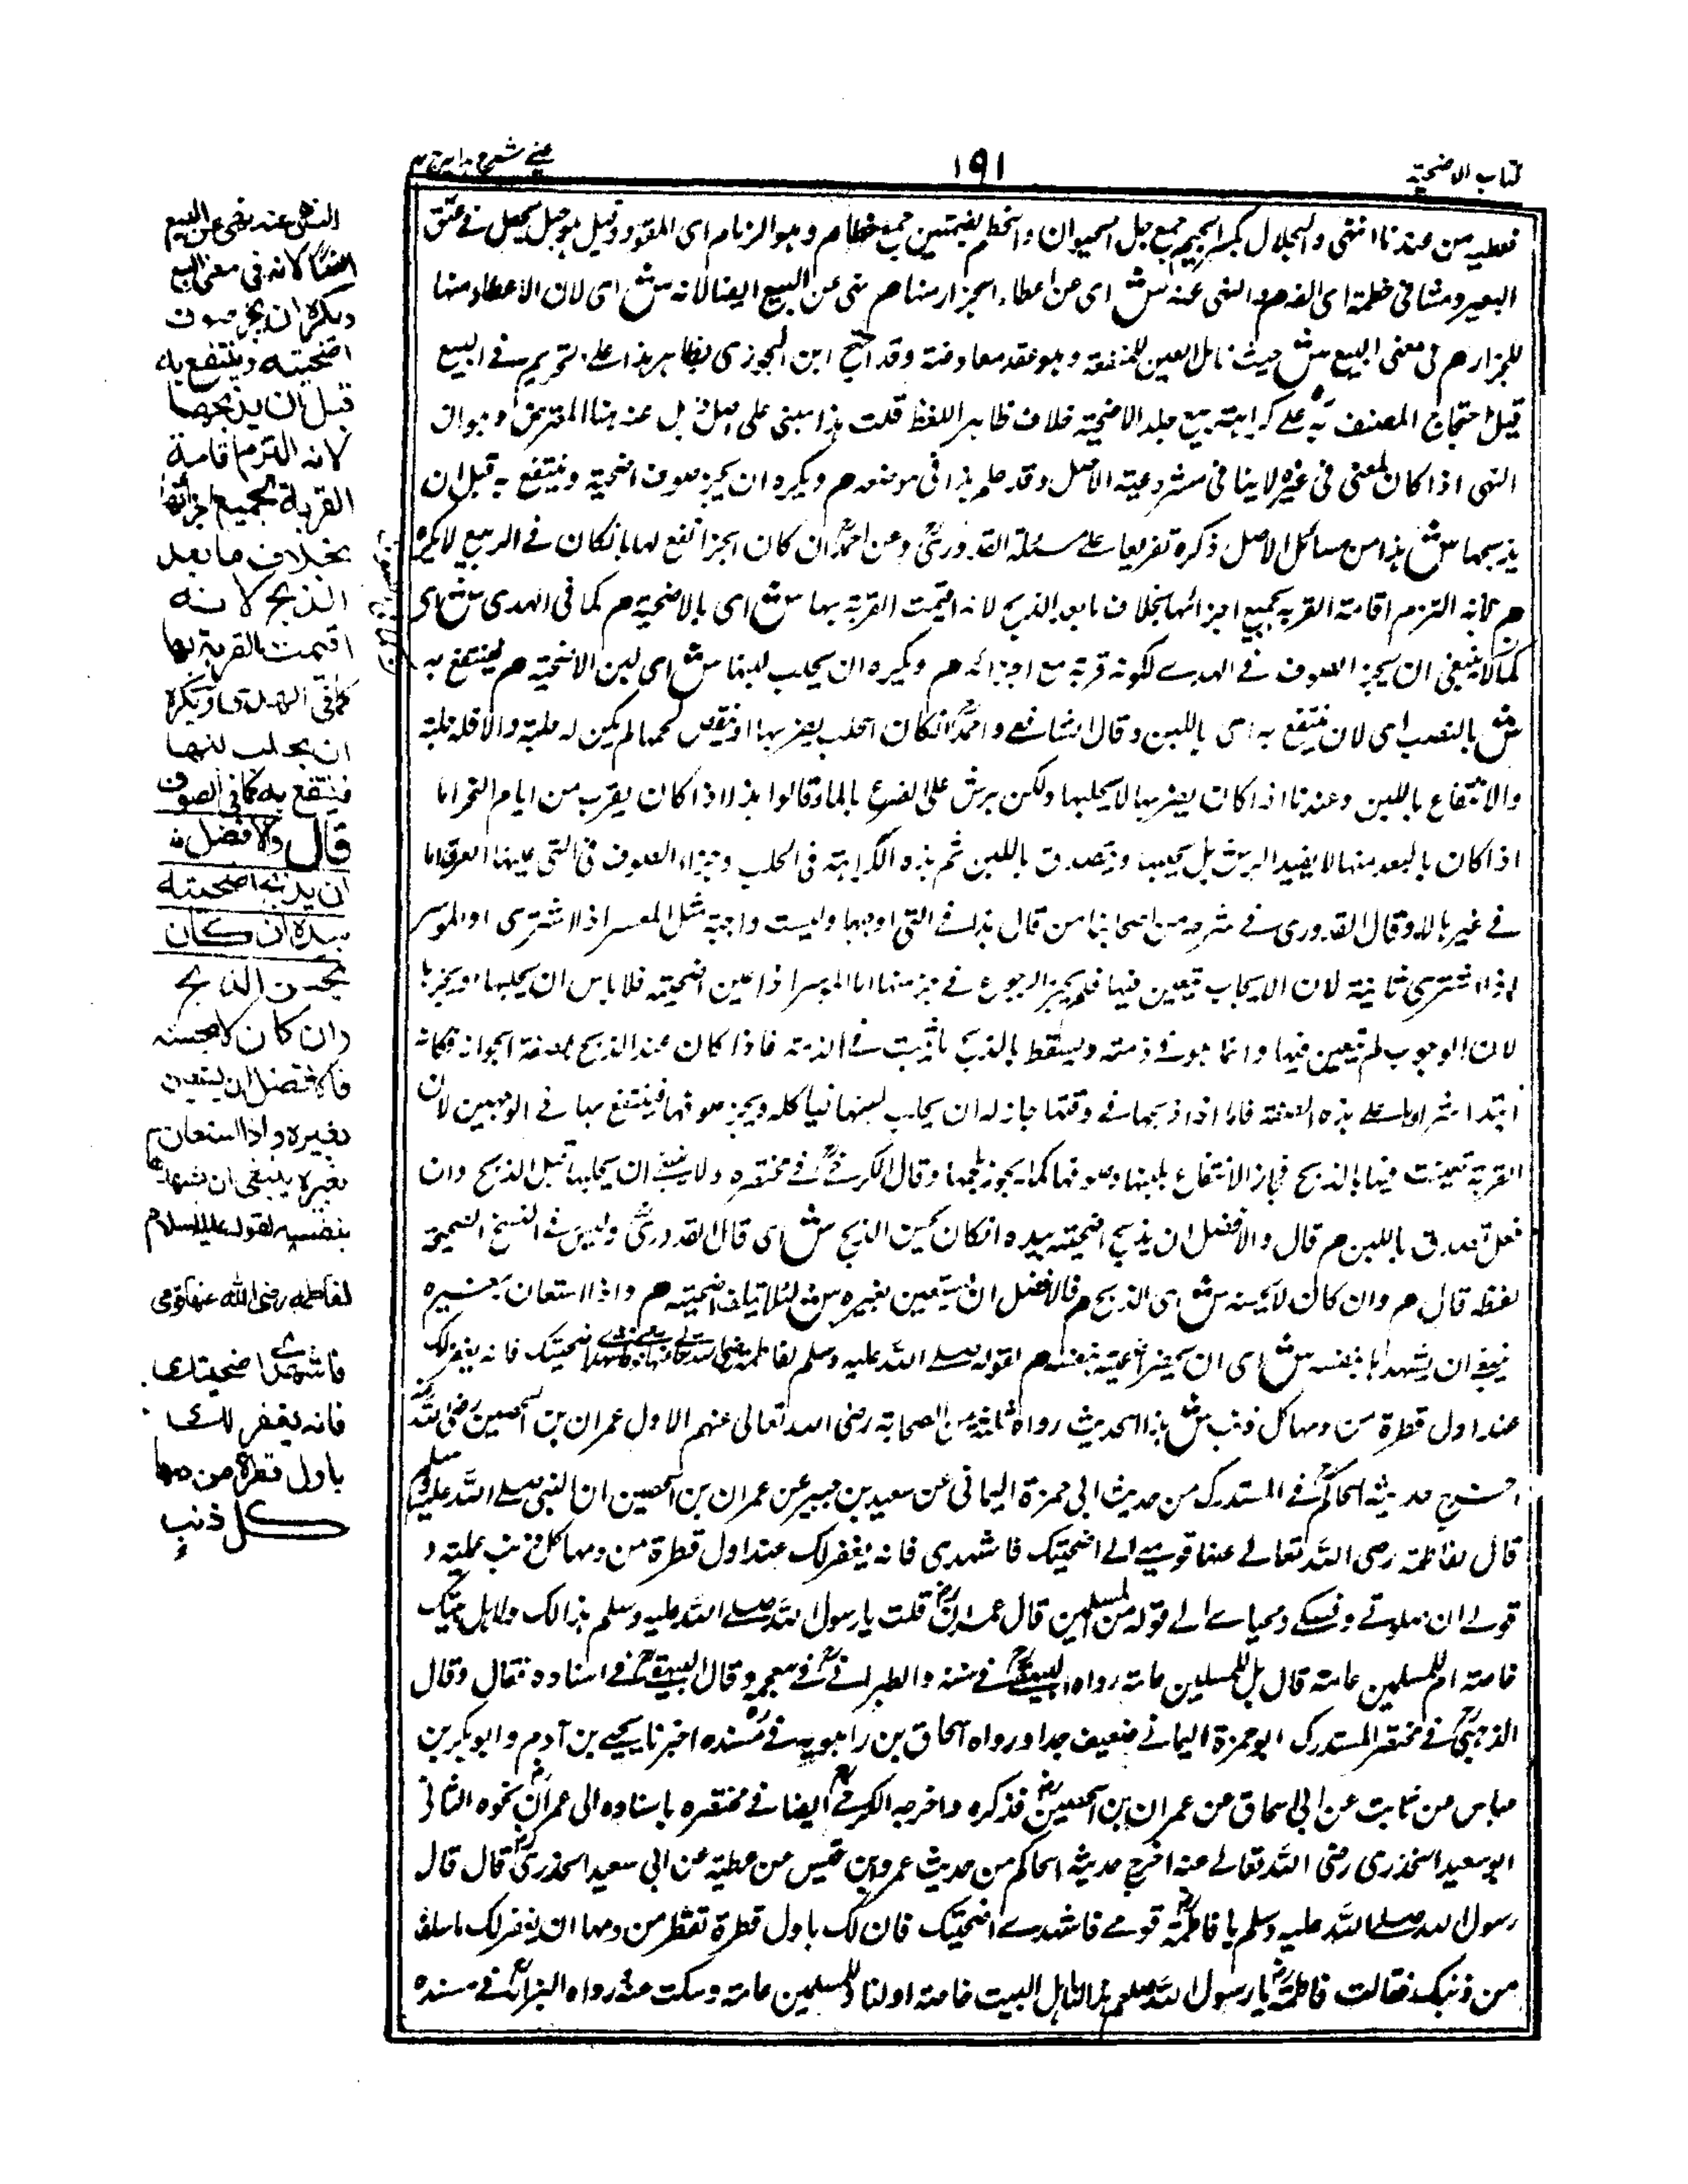 كتاب الاضحية
١٩١
عينى شرح هداية ج ٤
نعطيه من عندنا انتهى والجلال بكسر الجيم جمع جل الحيوان والخطم بضمتين جمع خطام وهو الزمام اى المقود وقيل هو حبل يجعل فى عنق
البعير ومثنا فى خطمة اى الفه م والنهى عنه ش اى عن اعطاء الجزار منها م نهى عن البيع ايضا لانه ش اى لان الاعطاء منها
للجزار م فى معنى البيع ش حيث نال العين للمنفعة وهو عقد معاوضة وقد احتج ابن الجوزى بظاهر هذا على تحريم فى البيع
قيل احتجاج المصنف به على كراهة بيع جلد الاضحية خلاف ظاهر اللفظ قلت هذا مبنى على اصل عنه هذا المعترض وهو ان
النهى اذا كان لمعنى فى غيره لا ينافى مشروعية الاصل وقد علم هذا فى موضعه م ويكره ان يجز صوف اضحية وينتفع به قبل ان
يذبحها ش هذا من مسائل الاصل ذكره تفريعا على مسئلة القدورى وعن احمد ان كان الجز انفع لها بان كان فى الربيع لا يكره
م لانه التزم اقامة القربة بجميع اجزائها بخلاف ما بعد الذبح لانه اقيمت القربة بها ش اى بالاضحية م كما فى الهدى ش اى
كما لا ينبغى ان يجز الصوف فى الهدى لكونه قربة مع اجزائه م ويكره ان يحلب لبنها ش اى لبن الاضحية م لينتفع به
ش بالنصب اى لان ينتفع به اى باللبن وقال الشافعى واحمد ان كان الحلب يضر بها او ينقص لحمها لم يكن له حلبه والا فله حلبه
والانتفاع باللبن وعندنا اذا كان يضر بها لا يحلبها ولكن يرش على الضرع بالماء وقالوا هذا اذا كان يقرب من ايام النحر اما
اذا كان بالبعد منها لا يفيد الرش بل يحلبها ويتصدق باللبن ثم هذه الكراهة فى الحلب وجزاء الصوف فى التى عينها العرف اما
فى غيرها لا وقال القدورى فى شرحه من اصحابنا من قال هذا فى التى اوجبها وليست واجبة مثل المعسر اذا اشترى او الموسر
اذا اشترى ثانية لان الايجاب تعين فيها فلم يجز الرجوع فى جز منها اما الموسر اذا عين اضحيته فلا باس ان يحلبها او يجزها
لان الوجوب لم يتعين فيها وانما هو فى ذمته ويسقط بالذبح ما ثبت فى الذمة فاذا كان عند الذبح بصفة الجواز فكانه
ابتدا شراءها على هذه الصفة فاما اذا ذبحها فى وقتها جاز له ان يحلب لبنها فياكله ويجز صوفها فينتفع بها فى الوجهين لان
القربة تعينت فيها بالذبح فجاز الانتفاع بلبنها وصوفها كما يجوز بلحمها وقال الكرخى فى مختصره ولا ينبغى ان يحلبها قبل الذبح وان
فعل تصدق باللبن م قال والافضل ان يذبح اضحيته بيده ان كان يحسن الذبح ش اى قال القدورى وليس فى النسخ الصحيحة
لفظ قال م وان كان لا يحسنه ش اى الذبح م فالافضل ان يستعين بغيره ش لئلا يتلف اضحيته م واذا استعان بغيره
ينبغى ان يشهدها بنفسه ش اى ان يحضر اضحيته بنفسه م لقوله صلى الله عليه وسلم لفاطمة رضى الله تعالى عنها قومى فاشهدى اضحيتك فانه يغفر لك
عند اول قطرة من دمها كل ذنب ش هذا الحديث رواه ثلاثة من الصحابة رضى الله تعالى عنهم الاول عمران بن الحصين رضى الله عنه
اخرج حديثه الحاكم فى المستدرك من حديث ابى حمزة اليمانى عن سعيد بن جبير عن عمران بن الحصين ان النبى صلى الله عليه وسلم
قال لفاطمة رضى الله تعالى عنها قومى الى اضحيتك فاشهدى فانه يغفر لك عند اول قطرة من دمها كل ذنب عملته و
قولى ان صلوتى ونسكى ومحياى الى قوله من المسلمين قال عمران قلت يا رسول الله صلى الله عليه وسلم هذا لك ولاهل بيتك
خاصة ام للمسلمين عامة قال بل للمسلمين عامة رواه البيهقى فى سننه والطبرانى فى معجمه وقال البيهقى فى اسناده مقال وقال
الذهبى فى مختصر المستدرك ابو حمزة اليمانى ضعيف جدا ورواه اسحاق بن راهويه فى مسنده اخبرنا يحيى بن آدم وابو بكر بن
عياش عن ثابت عن ابى اسحاق عن عمران بن الحصين فذكره واخرجه الكرخى ايضا فى مختصره باسناده الى عمران نحوه الثانى
ابو سعيد الخدرى رضى الله تعالى عنه اخرج حديثه الحاكم من حديث عمرو بن قيس عن عطية عن ابى سعيد الخدرى قال قال
رسول الله صلى الله عليه وسلم يا فاطمة قومى فاشهدى اضحيتك فان لك باول قطرة تقطر من دمها ان يغفر لك ما سلف
من ذنبك فقالت فاطمة يا رسول الله صلعم هذا لنا اهل البيت خاصة او لنا وللمسلمين عامة وسكت عنه رواه البزار فى مسنده
النهى عنه نهى عن البيع
ايضا لانه فى معنى البيع
ويكره ان يجز صوف
اضحيته وينتفع به
قبل ان يذبحها
لانه التزم اقامة
القربة بجميع اجزائها
بخلاف ما بعد
الذبح لانه
اقيمت القربة بها
كما فى الهدى ويكره
ان يحلب لبنها
فينتفع به كما فى الصوف
قال والافضل
ان يذبح اضحيته
بيده ان كان
يحسن الذبح
وان كان لا يحسنه
فالافضل ان يستعين
بغيره واذا استعان
بغيره ينبغى ان يشهدها
بنفسه لقوله عليه السلام
لفاطمة رضى الله عنها قومى
فاشهدى اضحيتك
فانه يغفر لك
باول قطرة من دمها
كل ذنب